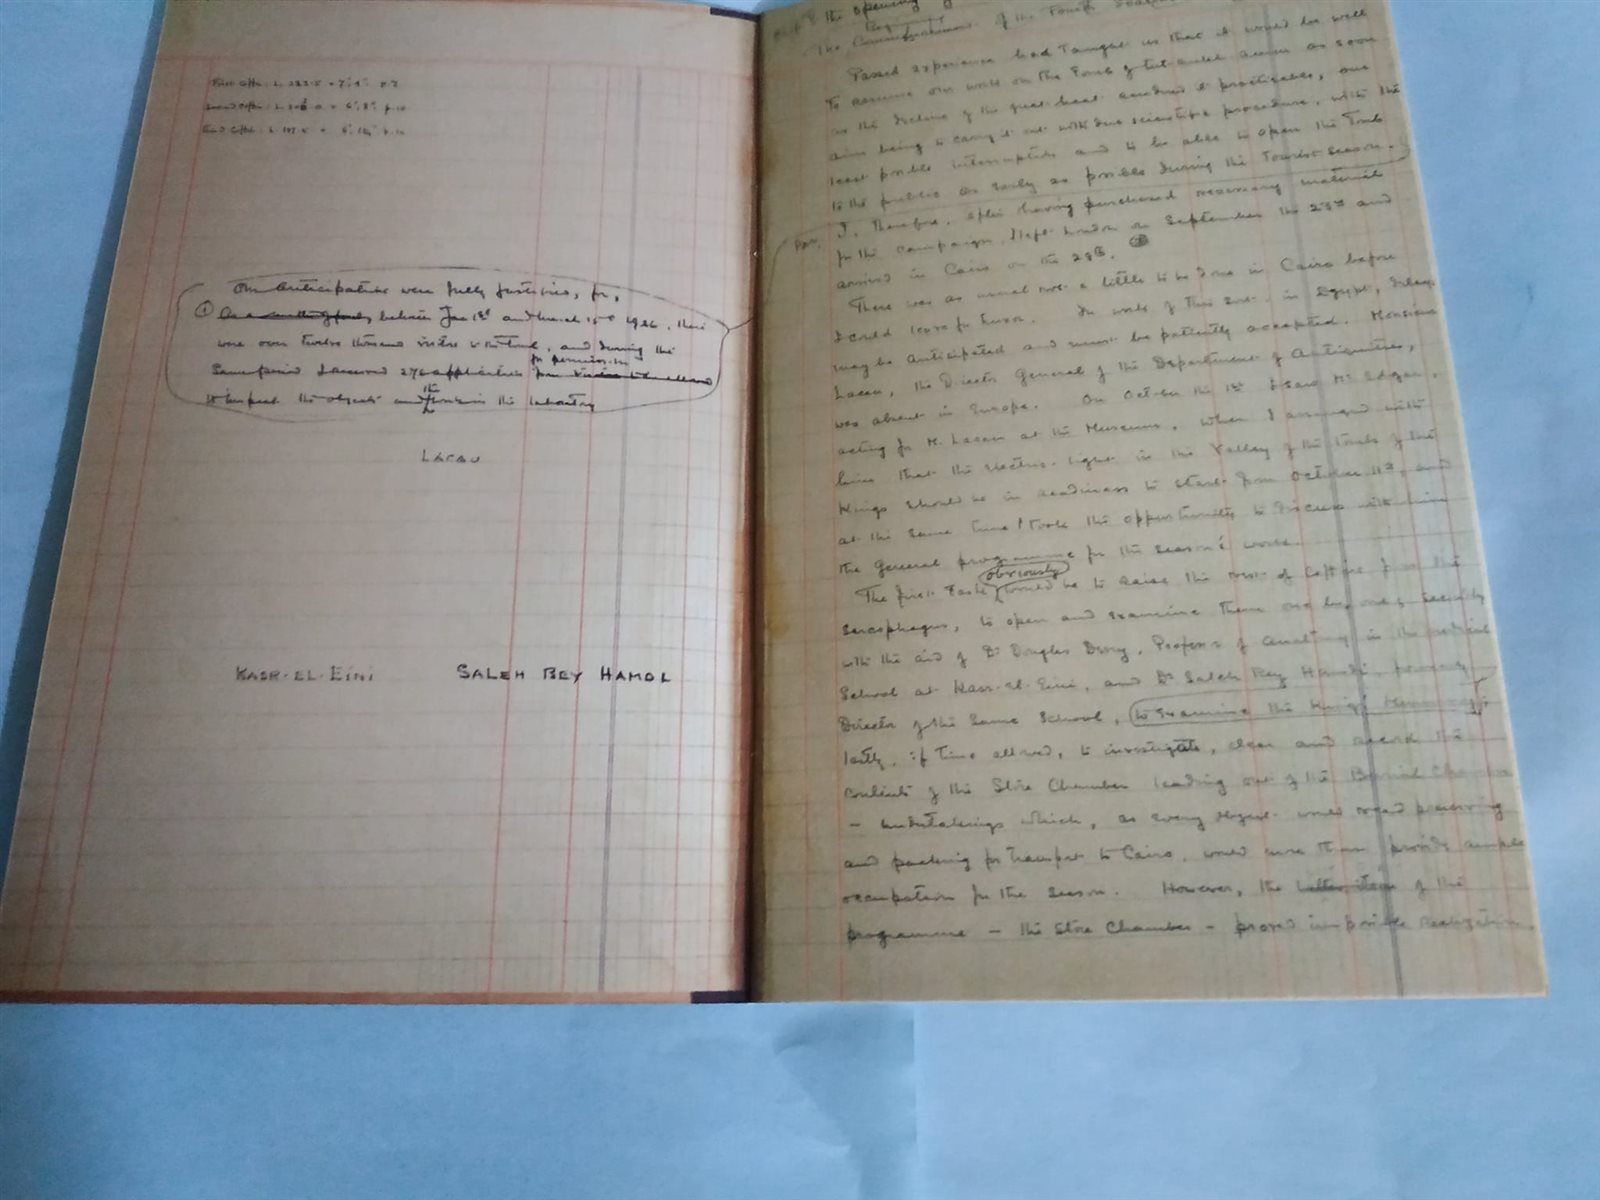 First Coffin: L. 223.5 = 7' 4" p. 7
Second Coffin: L. p. 10
Third Coffin: L. 187.5 = 6' 1¾" p. 10
Our anticipations were fully justified, for,
① between Jan 1st and March 15th 1926, there
were over twelve thousand visitors to the tomb, and during the
for permission
same period I received 270 applications
to inspect the objects and the work in the laboratory
LACAU
KASR-EL-EINI SALEH BEY HAMDI
the opening
The of the Fourth
Passed experience had taught us that it would be well
to resume our work on the Tomb of Tut-ankh-Amen as soon
as the decline of the great heat rendered it practicable, our
aim being to carry it out with due scientific procedure, with the
least posible interruption and to be able to open the Tomb
to the public as early as posible during the Tourist Season.
I, therefore, after having purchased necessary material
for the campaign, left London on September the 23rd and
arrived in Cairo on the 28th.
There was as usual not a little to be done in Cairo before
I could leave for Luxor. In work of this sort, in Egypt, delays
may be anticipated and must be patiently accepted. Monsieur
Lacau, the Director General of the Department of Antiquities,
was absent in Europe. On October the 1st I saw Mr Edgar,
acting for M. Lacau at the Museum, when I arranged with
him that the electric light in the Valley of the Tombs of the
Kings should be in readiness to start from October 11th, and
at the same time I took the opportunity to discuss with him
the general programme for the season's work.
obviously
The first task would be to raise the nest of coffins from the
sarcophagus, to open and examine them one by one; secondly
with the aid of Dr Douglas Derry, Professor of Anatomy in the medical
School at Kasr-el-Eini, and Dr Saleh Bey Hamdi, formerly
Director of the same school, to examine the King's Mummy;
lastly, if time allowed, to investigate, clear and record the
contents of the Store Chamber leading out of the Burial Chamber
— undertakings which, as every object would need preserving
and packing for transport to Cairo, would more than provide ample
occupation for the season. However, the latter item of the
programme — the Store Chamber — proved impossible realization.